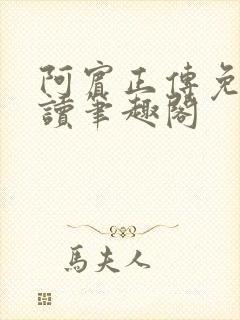 阿賓正傳免
讀筆趣閣
馬夫人